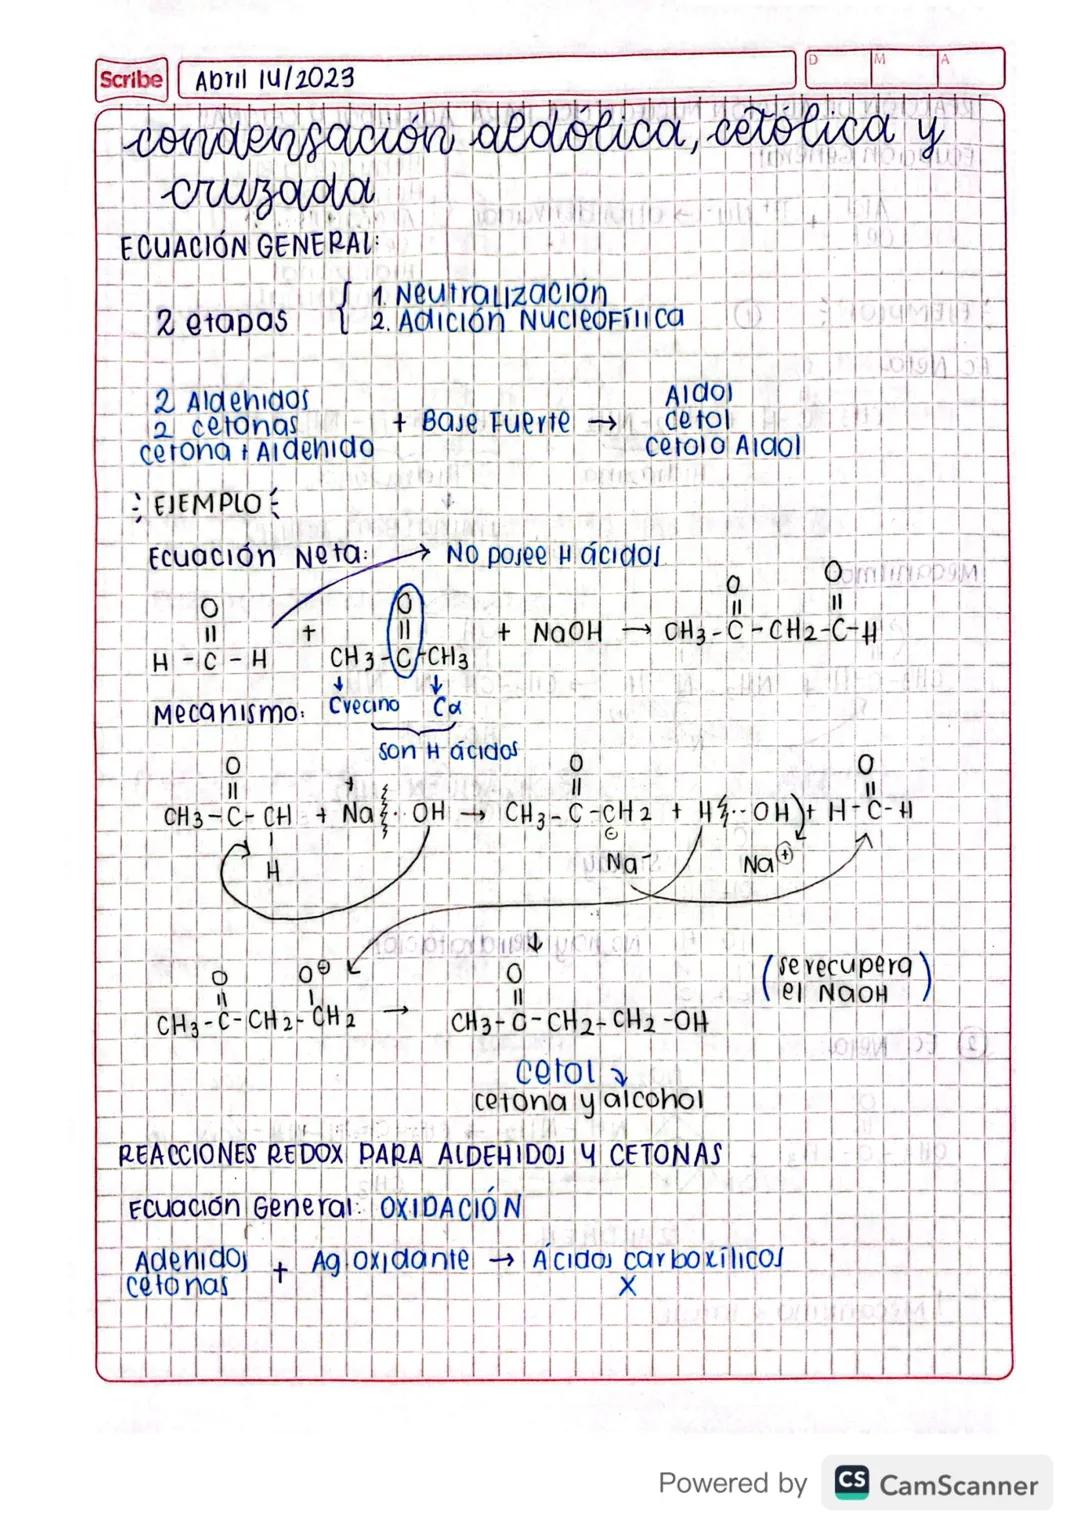 Scribe Abril 14/2023 D M A
condensación aldólica, cetólica y
cruzada
ECUACIÓN GENERAL:
2 etapas { 1. Neutralización
2. Adición Nucleofílica
2 Aldehidos
2 cetonas
cetona + Aldehido
+ Base Fuerte →
Aldol
cetol
cetol o Aldol
EJEMPLO
Ecuación Neta: → No posee H ácidos
O O O O
H - C - H + CH3 - C - CH3 + NaOH → CH3 - C - CH2 - C - H
Mecanismo: Cvecino Cα
son H ácidos
O O O
CH3 - C - CH + Na+ ·· OH → CH3 - C - CH2 + H ·· OH + H - C - H
H ⊖ Na- Na⊕
O O⊖ O
CH3 - C - CH2 - CH2 → CH3 - C - CH2 - CH2 - OH
(se recupera
el NaOH)
cetol
cetona y alcohol
REACCIONES REDOX PARA ALDEHIDOS Y CETONAS
Ecuación General: OXIDACIÓN
Adenidos + Ag oxidante → Ácidos carboxílicos
cetonas X
Powered by CS CamScanner